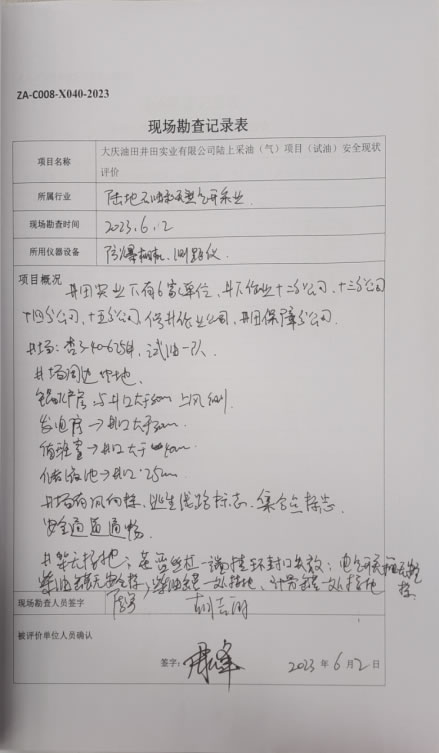 ZA-C008-X040-2023
现场勘查记录表
项目名称 大庆油田井田实业有限公司陆上采油（气）项目（试油）安全现状
评价
所属行业 陆地石油和天然气开采业
现场勘查时间 2023.6.12
所用仪器设备 防爆相机、测距仪
项目概况
井田实业下有6家单位，井下作业十二分公司，十三分公司
十四分公司，十五分公司，作业公司，井田保障分公司.
井场：杏3-40-625井，试油一队
井场周边
与井口大于30m 上风侧.
发电房→井口大于30m
值班室→井口大于
储液池→井口25m
井场有风向标，逃生线路标志，集合点标志
安全通道通畅
无接地；
柴油罐一处接地，计量罐一处接地
现场勘查人员签字
被评价单位人员确认
签字： 2023 年 6 月 12 日